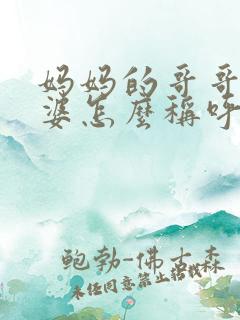 妈妈的哥哥
婆怎麼稱呼
鲍勃-佛士森
未经同意禁止搭载